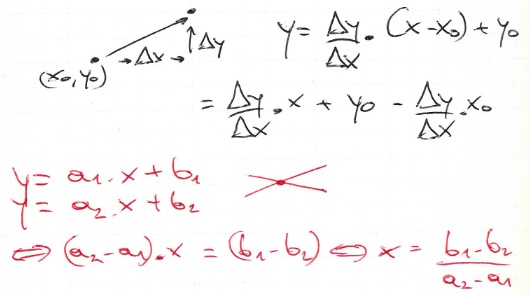 y = Δy/Δx · (x-x₀) + y₀
(x₀, y₀) → Δx → ↑ Δy
= Δy/Δx · x + y₀ - Δy/Δx · x₀
y = a₁ · x + b₁
y = a₂ · x + b₂
⇔ (a₂-a₁) · x = (b₁-b₂) ⇔ x = b₁-b₂/a₂-a₁